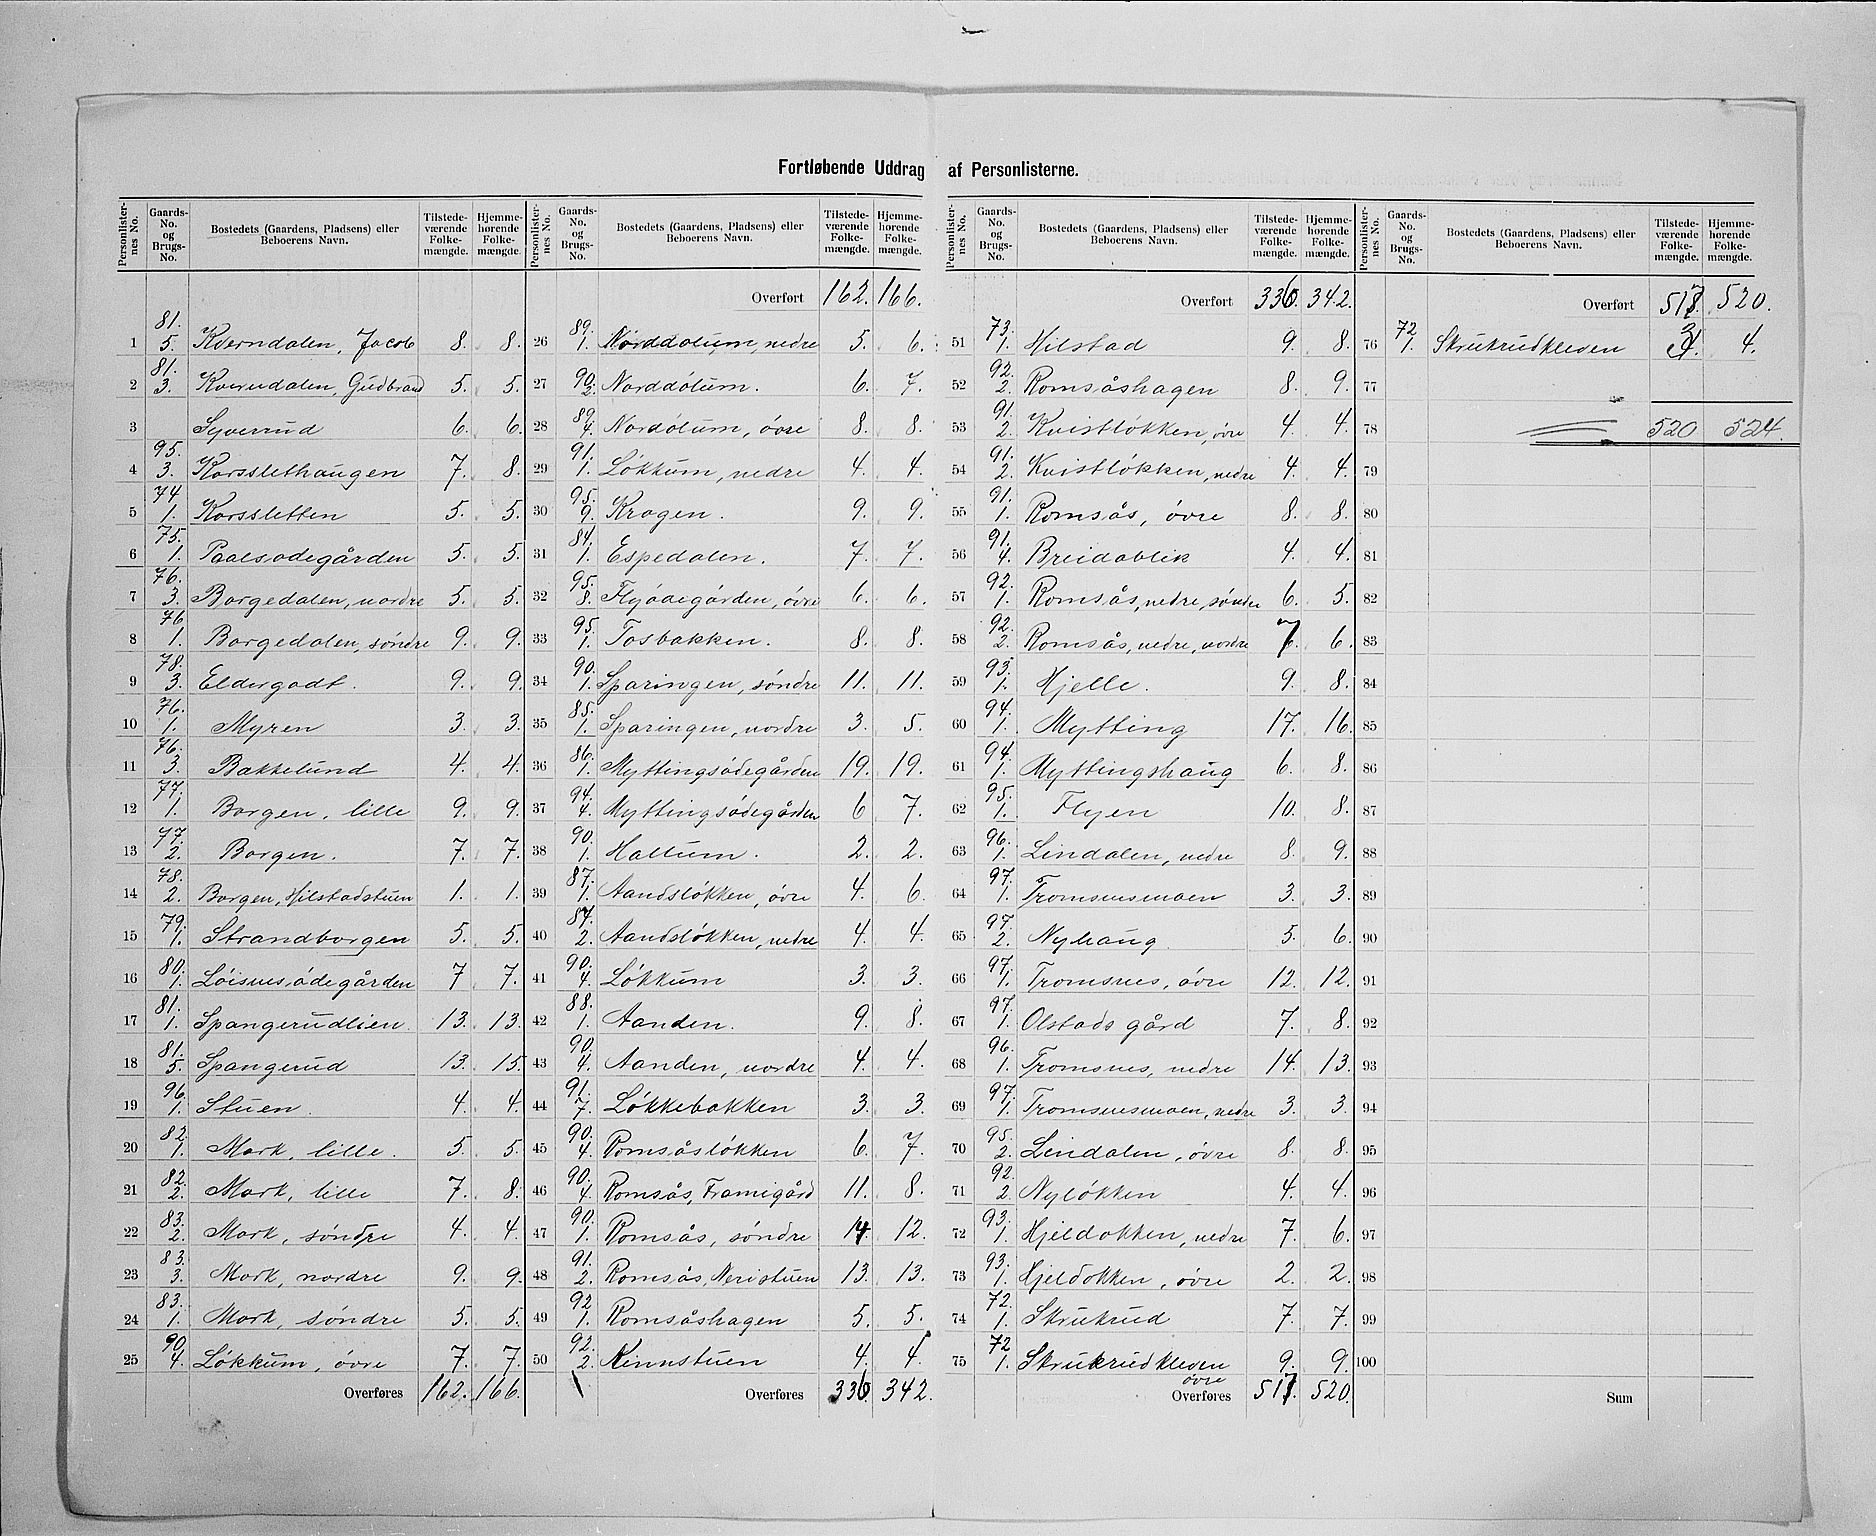 Fortløbende Uddrag af Personlisterne.
Personlister-nes No. | Gaards-No. og Brugs-No. | Bostedets (Gaardens, Pladsens) eller Beboerens Navn. | Tilstede-værende Folke-mængde. | Hjemme-hørende Folke-mængde.
1 81. 5. Kverndalen, Jacob 8. 8.
2 81. 3. Kverndalen, Gudbrand 5. 5.
3 Syverrud 6. 6.
4 95. 3. Korsslethaugen 7. 8.
5 74. 1. Korssletten 5. 5.
6 75. 1. Baalsødegården 5. 5.
7 76. 3. Borgedalen, nordre 5. 5.
8 76 1. Borgedalen, søndre 9. 9.
9 78. 3. Eldergodt. 9. 9.
10 76. 1. Myren 3. 3.
11 76. 3. Bakkelund 4. 4.
12 77. 1. Borgen, lille 9. 9.
13 77. 2. Borgen. 7. 7.
14 78. 2. Borgen, Hilstadstuen 1. 1.
15 79. 1. Strandborgen 5. 5.
16 80. 1. Løisnesødegården 7 7.
17 81. 1. Spangerudlien. 13. 13.
18 81. 5. Spangerud 13. 15.
19 96. 1. Stuen. 4. 4.
20 82. 1. Mark, lille. 5. 5.
21 82. 2. Mark, lille 7. 8.
22 83. 2. Mark, søndre 4. 4.
23 83. 3. Mark, nordre 9. 9.
24 83. 1. Mark, søndre 5. 5.
25 90. 4. Løkkum, øvre 7. 7.
Overføres 162. 166.
Personlister-nes No. | Gaards-No. og Brugs-No. | Bostedets (Gaardens, Pladsens) eller Beboerens Navn. | Tilstede-værende Folke-mængde. | Hjemme-hørende Folke-mængde.
Overført 162. 166.
26 89. 1. Norddølum, nedre 5. 6.
27 90. 2. Norddølum. 6. 7.
28 89. 4. Nordølum, øvre 8. 8.
29 91. 1. Løkkum, nedre 4. 4.
30 95. 9. Kragen. 9. 9.
31 84. 1. Espedalen. 7. 7.
32 95. 8. Flyødegården, øvre 6. 6.
33 95. 1. Tosbakken. 8. 8.
34 90. 1. Sparingen, søndre 11. 11.
35 85. 1. Sparingen, nordre 3. 5.
36 86. 1. Myttingsødegården 19. 19.
37 94. 4. Myttingsødegården 6 7.
38 90. 1. Hallum. 2. 2.
39 87. 1. Aandsløkken, øvre 4. 6.
40 87. 2. Aandsløkken, nedre 4. 4.
41 90. 4. Løkkum 3. 3.
42 88. 1. Aanden. 9. 8.
43 90. 4. Aanden, nordre 4. 4.
44 91. 7. Løkkebakken 3. 3.
45 90. 4. Romsåsløkken 6. 7.
46 90. 4. Romsås, Framigård 11. 8.
47 90. 1. Romsås, søndre 14. 12.
48 91. 2. Romsås, Neristuen 13. 13.
49 92 1. Romsåshagen 5. 5.
50 92. 2. Kinnstuen 4. 4.
Overføres 336 342.
Personlister-nes No. | Gaards-No. og Brugs-No. | Bostedets (Gaardens, Pladsens) eller Beboerens Navn. | Tilstede-værende Folke-mængde. | Hjemme-hørende Folke-mængde.
Overført 336. 342.
51 73. 1. Hilstad 9. 8.
52 92. 2. Romsåshagen 8. 9.
53 91. 2. Kvistløkken, øvre 4. 4.
54 91. 2. Kvistløkken, nedre 4. 4.
55 91. 1. Romsås, øvre 8. 8.
56 91. 4. Breidablik 4. 4.
57 92. 1. Romsås, nedre, søndre 6. 5.
58 92. 2. Romsås, nedre, nordre 7. 6.
59 93. 1. Hjelle. 9. 8.
60 94. 1. Mytting 17. 16.
61 94. 1. Myttingshaug 6. 8.
62 95. 1. Flyen 10. 8.
63 96. 1. Lindalen, nedre 8. 9.
64 97. 1. Tromsnesmoen 3. 3.
65 97. 2. Nyhaug. 5. 6.
66 97. 1. Tromsnes, øvre 12. 12.
67 97. 1. Olstads gård 7. 8.
68 96. 1. Tromsnes, nedre 14. 13.
69 97. 1. Tromsnesmoen, nedre 3. 3.
70 95. 2. Lindalen, øvre 8. 8.
71 92. 2. Nyløkken 4. 4.
72 93. 1. Hjeldokken, nedre 7. 6.
73 93. 1. Hjeldokken, øvre 2. 2.
74 72. 1. Skrukrud 7. 7.
75 72 1. Skrukrudkleven øvre 9. 9.
Overføres 517. 520.
Personlister-nes No. | Gaards-No. og Brugs-No. | Bostedets (Gaardens, Pladsens) eller Beboerens Navn. | Tilstede-værende Folke-mængde. | Hjemme-hørende Folke-mængde.
Overført 517. 520.
76 72 1. Skrukrudkleven 3 4.
77
78 520 524.
79
80
81
82
83
84
85
86
87
88
89
90
91
92
93
94
95
96
97
98
99
100
Sum